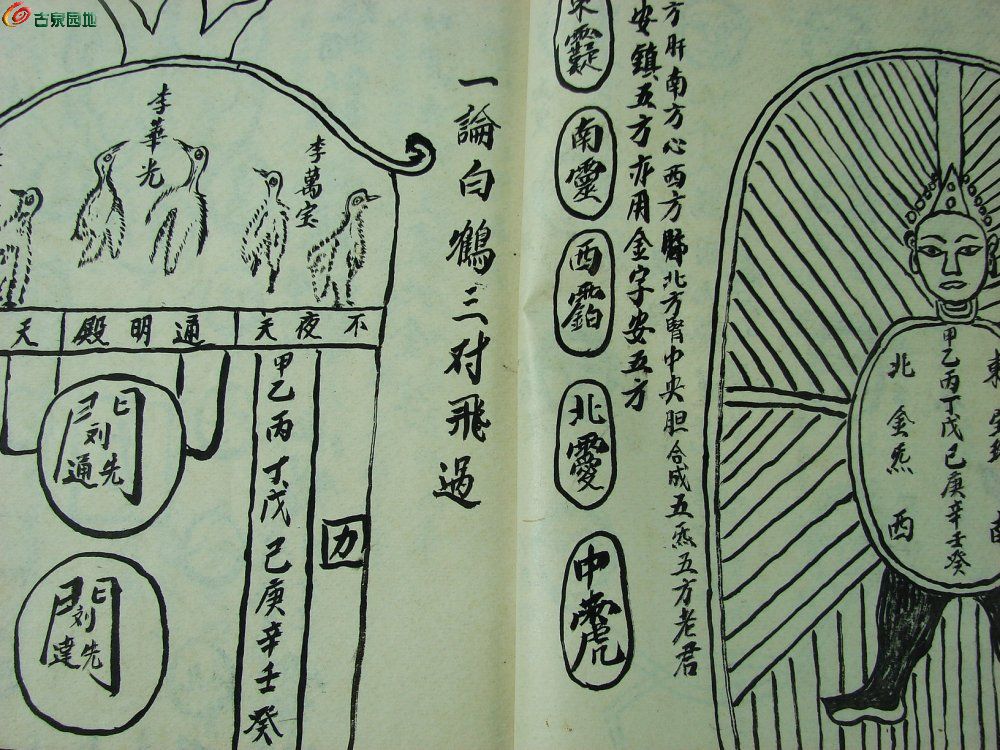 古泉园地
東
甲乙丙丁戊己庚辛壬癸
北金炁西
方肝南方心西方肺北方腎中央胆合成五炁五方老君
安鎮五方亦用金字安五方
東
南靈
西
北
中
一論白鶴三对飛過
李萬宝
李華光
不夜天
通明殿
天
力
甲乙丙丁戊己庚辛壬癸
門刘先通
門刘先達